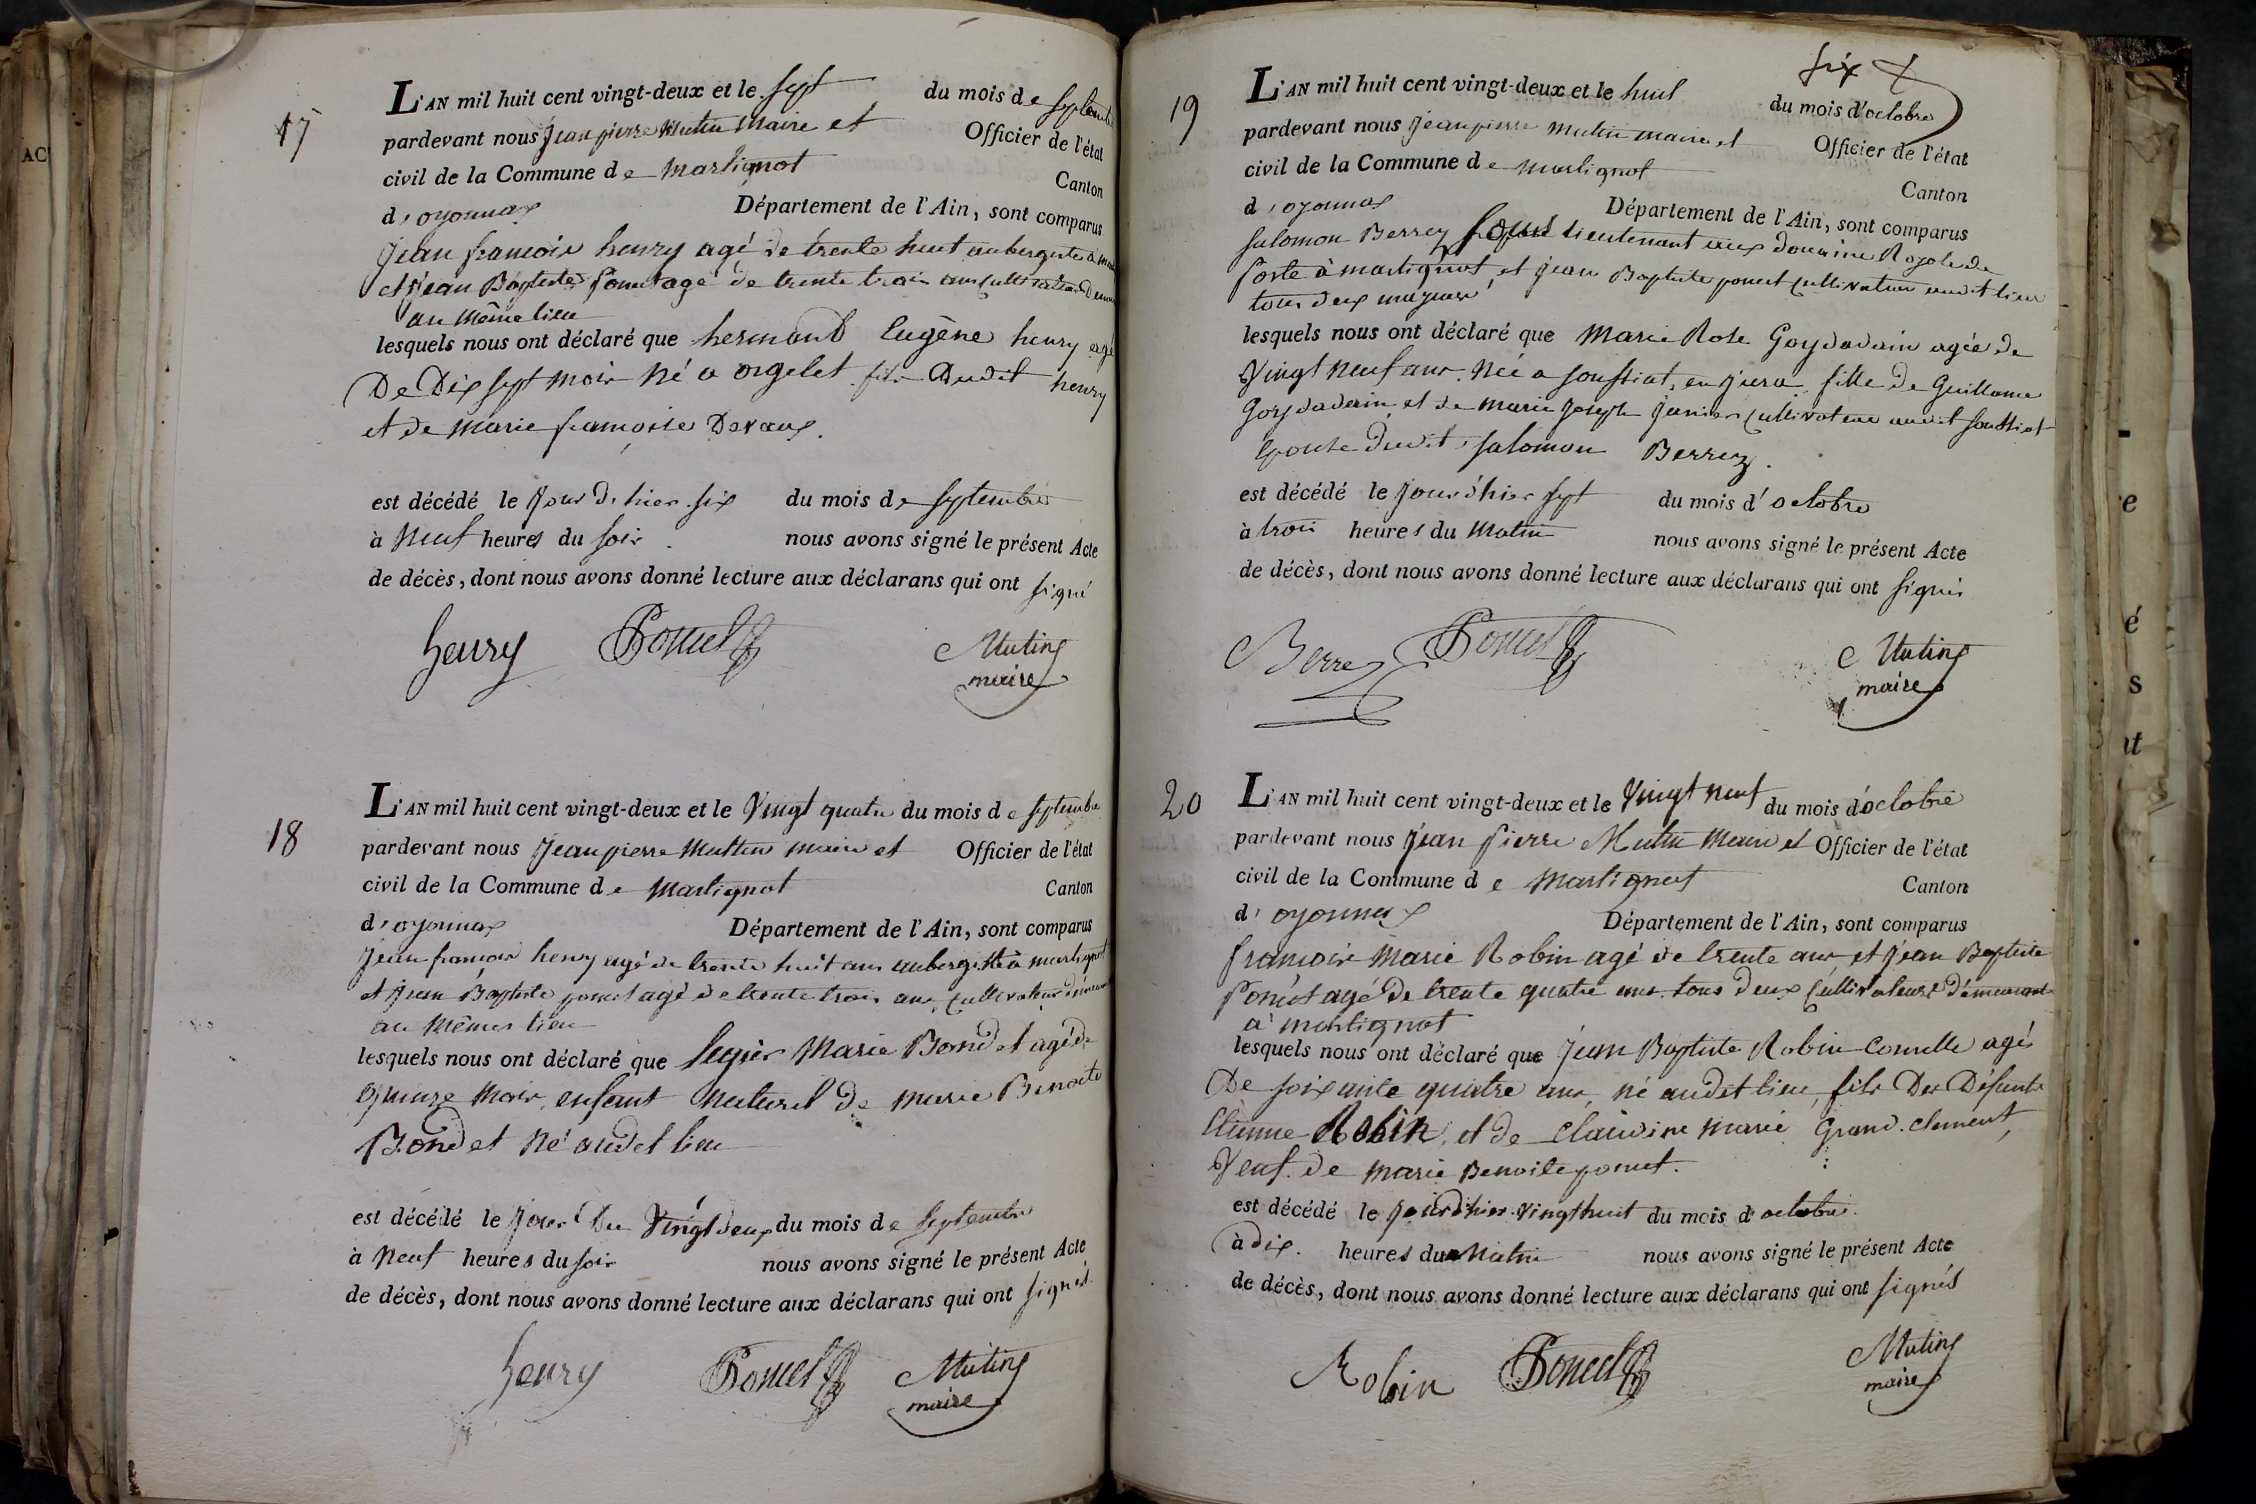 17
L'AN mil huit cent vingt-deux et le sept du mois de septembre
pardevant nous Jean pierre Mutin Maire et Officier de l'état
civil de la Commune de Martignat Canton
d'oyonnax Département de l'Ain, sont comparus
Jean francois henry agé de trente huit aubergiste à
et Jean Baptiste Poncet agé de trente trois ans cultivateur
au même lieu
lesquels nous ont déclaré que hermand Eugène henry agé
De Dix sept mois Né a orgelet fils Dudit henry
et de Marie françoise Devaux.
est décédé le jour de hier six du mois de septembre
à Neuf heures du soir nous avons signé le présent Acte
de décès, dont nous avons donné lecture aux déclarans qui ont signé
henry Poncet Mutin
maire
18
L'AN mil huit cent vingt-deux et le Vingt quatre du mois de septembre
pardevant nous Jean pierre Muttin maire et Officier de l'état
civil de la Commune de Martignat Canton
d'oyonnax Département de l'Ain, sont comparus
Jean francois henry agé de trente huit ans aubergiste à martignat
et Jean Baptiste poncet agé de trente trois ans, cultivateur
au Mêmes lieu
lesquels nous ont déclaré que Marie Bondet agé de
Quinze Mois, enfant Naturel de marie Benoite
Bondet Né audit lieu
est décédé le jour Du Vingt deux du mois de septembre
à Neuf heures du soir nous avons signé le présent Acte
de décès, dont nous avons donné lecture aux déclarans qui ont signés
henry Poncet Mutin
maire
six
19
L'AN mil huit cent vingt-deux et le huit du mois d'octobre
pardevant nous Jean pierre mutin maire et Officier de l'état
civil de la Commune de Martignat Canton
d'oyonnax Département de l'Ain, sont comparus
salomon Berrez sous lieutenant aux douaine Royale de
Poste à martignat, et Jean Baptiste poncet cultivateur audit lieu
tous deux majeurs
lesquels nous ont déclaré que Marie Rose Goydadain agée de
Vingt Neuf ans. Née a en jura, fille de Guillaume
Goydadain, et de marie Joseph Janier cultivateur audit
épouse dudit salomon Berrez.
est décédé le jour d'hier sept du mois d'octobre
à trois heures du Matin nous avons signé le présent Acte
de décès, dont nous avons donné lecture aux déclarans qui ont signés
Berrez Poncet Mutin
maire
20
L'AN mil huit cent vingt-deux et le Vingt Neuf du mois d'octobre
pardevant nous Jean Pierre Mutin Maire et Officier de l'état
civil de la Commune de Martignat Canton
d'oyonnax Département de l'Ain, sont comparus
francois Marie Robin agé de trente ans et Jean Baptiste
Poncet agé De trente quatre ans tous deux Cultivateurs Démeurant
à martignat
lesquels nous ont déclaré que Jean Baptiste Robin agé
De soixante quatre ans, né audit lieu, fils Des Défunts
Etienne Robin, et de Claudine Marie Grand-clement,
Veuf de Marie Benoite poncet.
est décédé le jour d'hier Vingt huit du mois d'octobre.
à dix. heures du Matin nous avons signé le présent Acte
de décès, dont nous avons donné lecture aux déclarans qui ont signés
Robin Poncet Mutin
maire